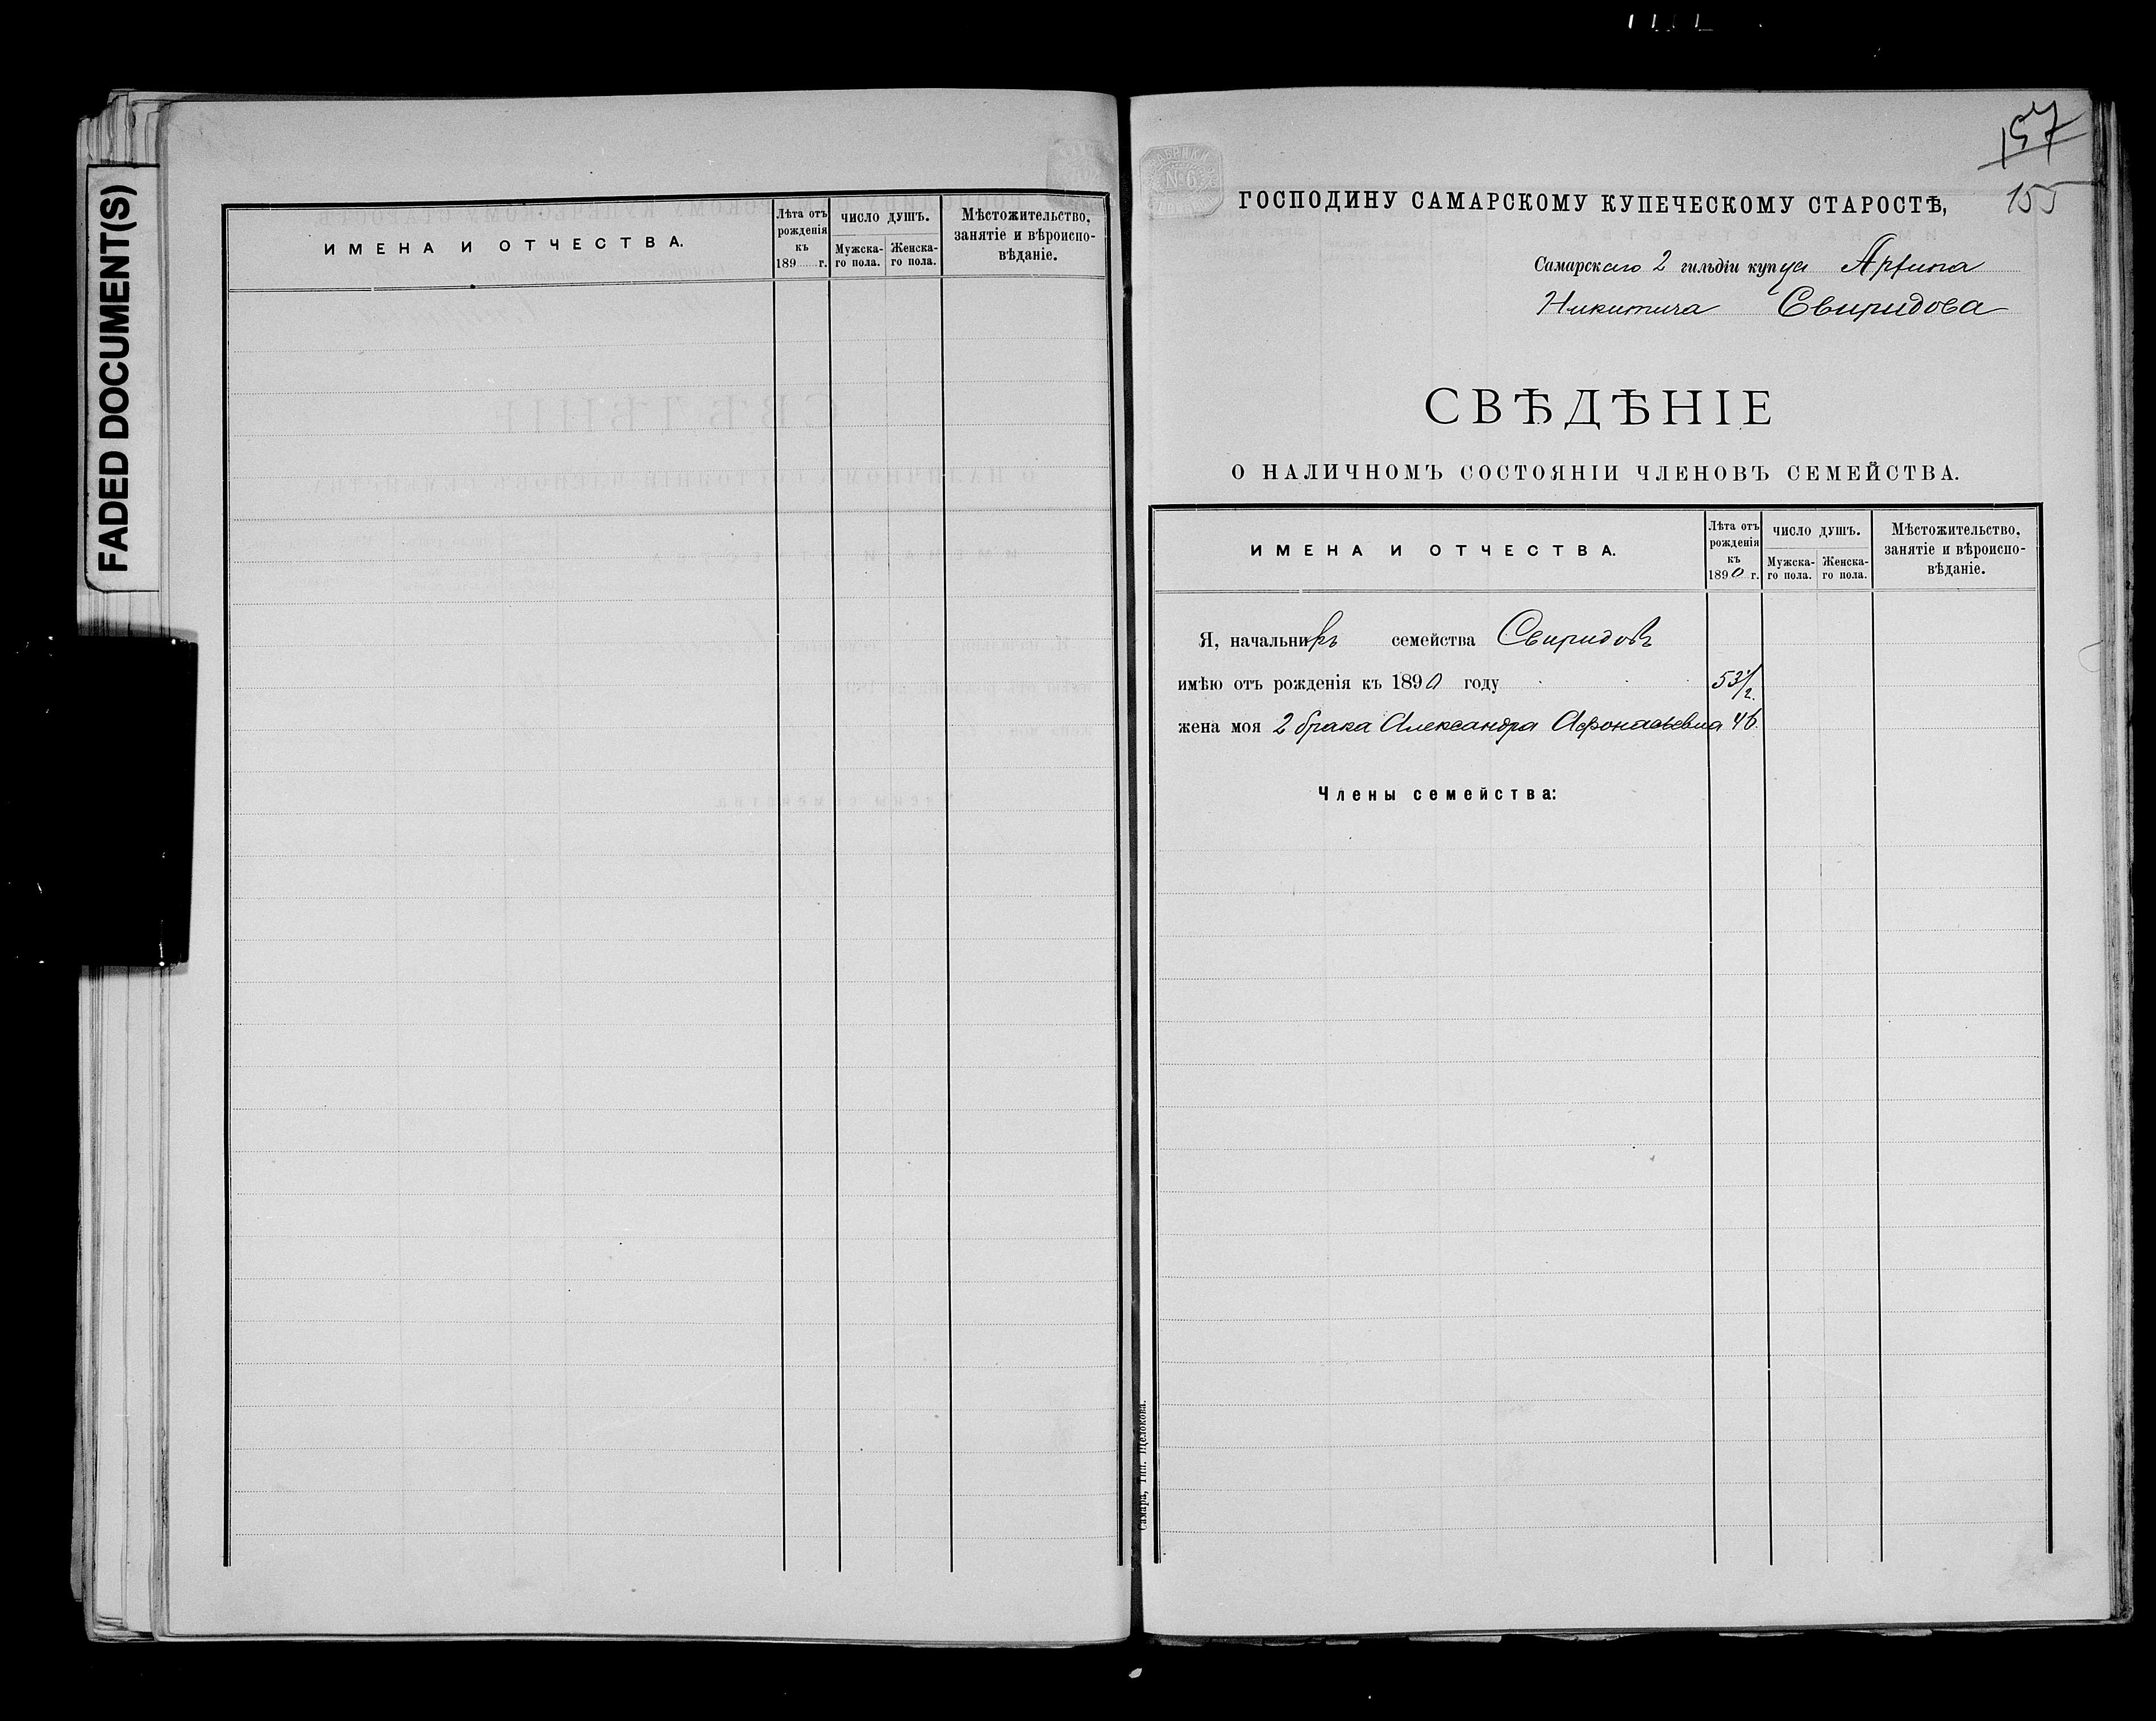 FADED DOCUMENT(S)
ИМЕНА И ОТЧЕСТВА.
Лѣта отъ рожденія къ 189 г.
ЧИСЛО ДУШЪ.
Мужска-го пола.
Женска-го пола.
Мѣстожительство,
занятіе и вѣроиспо-
вѣданіе.
157
155
№ 6
ГОСПОДИНУ САМАРСКОМУ КУПЕЧЕСКОМУ СТАРОСТѢ,
Самарскаго 2 гильдіи купца
Никитича Свиридова
СВѢДѢНІЕ
О НАЛИЧНОМЪ СОСТОЯНІИ ЧЛЕНОВЪ СЕМЕЙСТВА.
ИМЕНА И ОТЧЕСТВА.
Лѣта отъ рожденія къ 1890 г.
ЧИСЛО ДУШЪ.
Мужска-го пола.
Женска-го пола.
Мѣстожительство,
занятіе и вѣроиспо-
вѣданіе.
Я, начальникъ семейства Свиридовъ
имѣю отъ рожденія къ 1890 году 53 1/2
жена моя 2 брака Александра Афонасьевна
Члены семейства:
Самара, Тип. Щелокова.